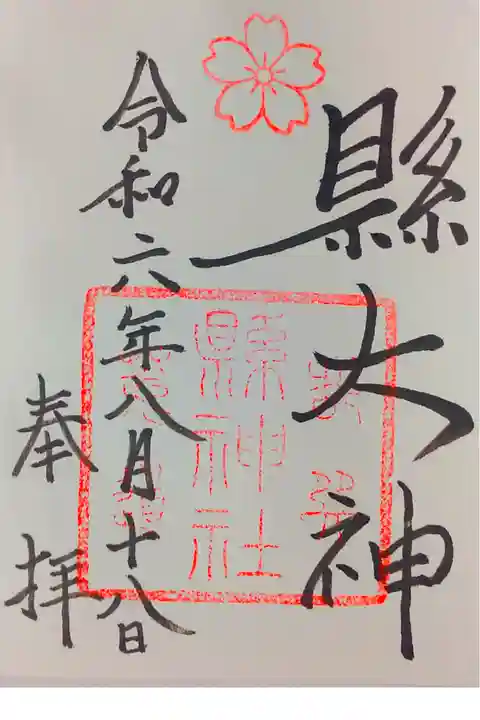 縣大神
令和六年八月十八日
奉拝
縣神社